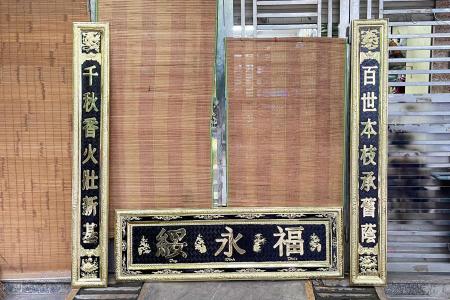 百世本枝承舊蔭
千秋香火壯新基
福永綏